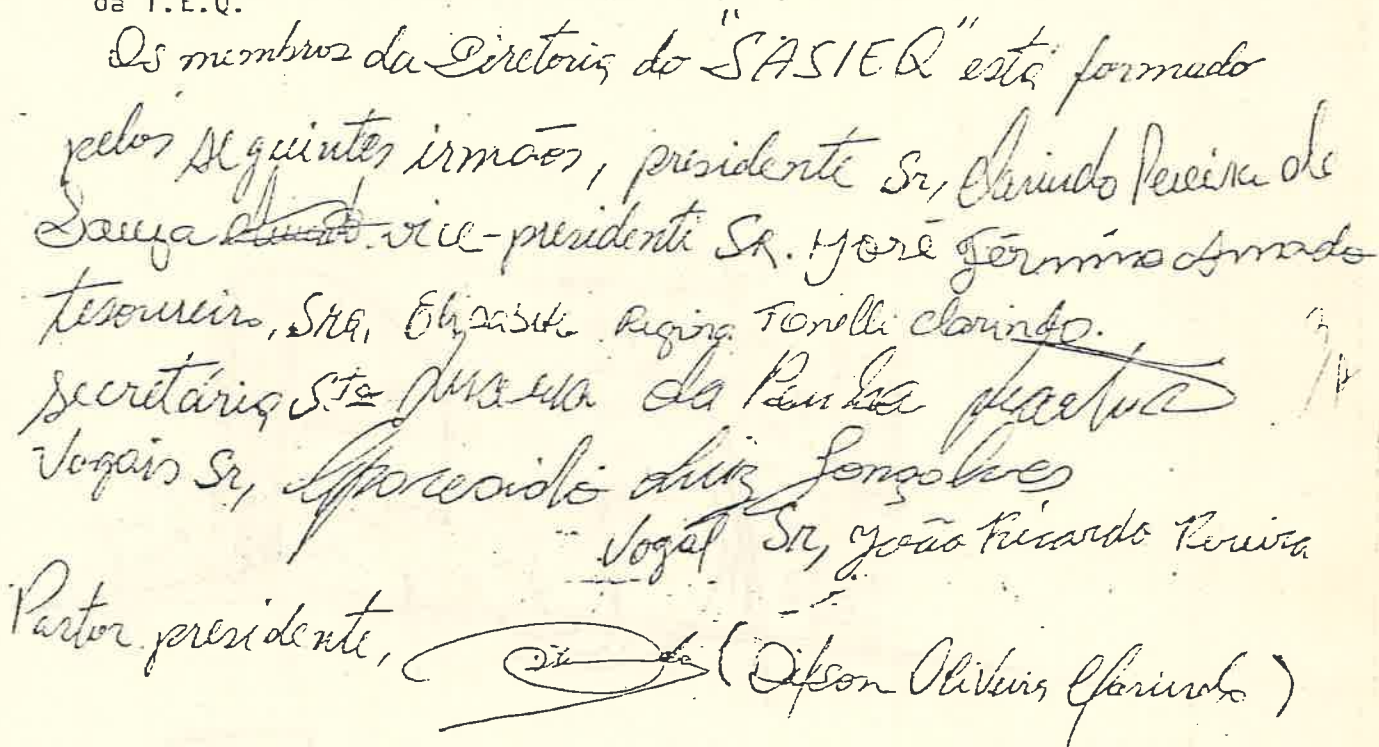 da I.E.Q.
Os membros da Diretoria do "SASIEQ" está formado
pelos seguintes irmãos, presidente Sr, Clarindo Pereira de
Souza vice-presidente SR. José Férmino Amado
tesoureiro, SRA, Elizabete Regina Tonelli Clarindo.
secretária Sta da Penha Martins
Vogais Sr, Aparecido Luiz Gonçalves
Vogal Sr, João Ricardo Pereira
Pastor presidente, ( Oliveira Clarindo )